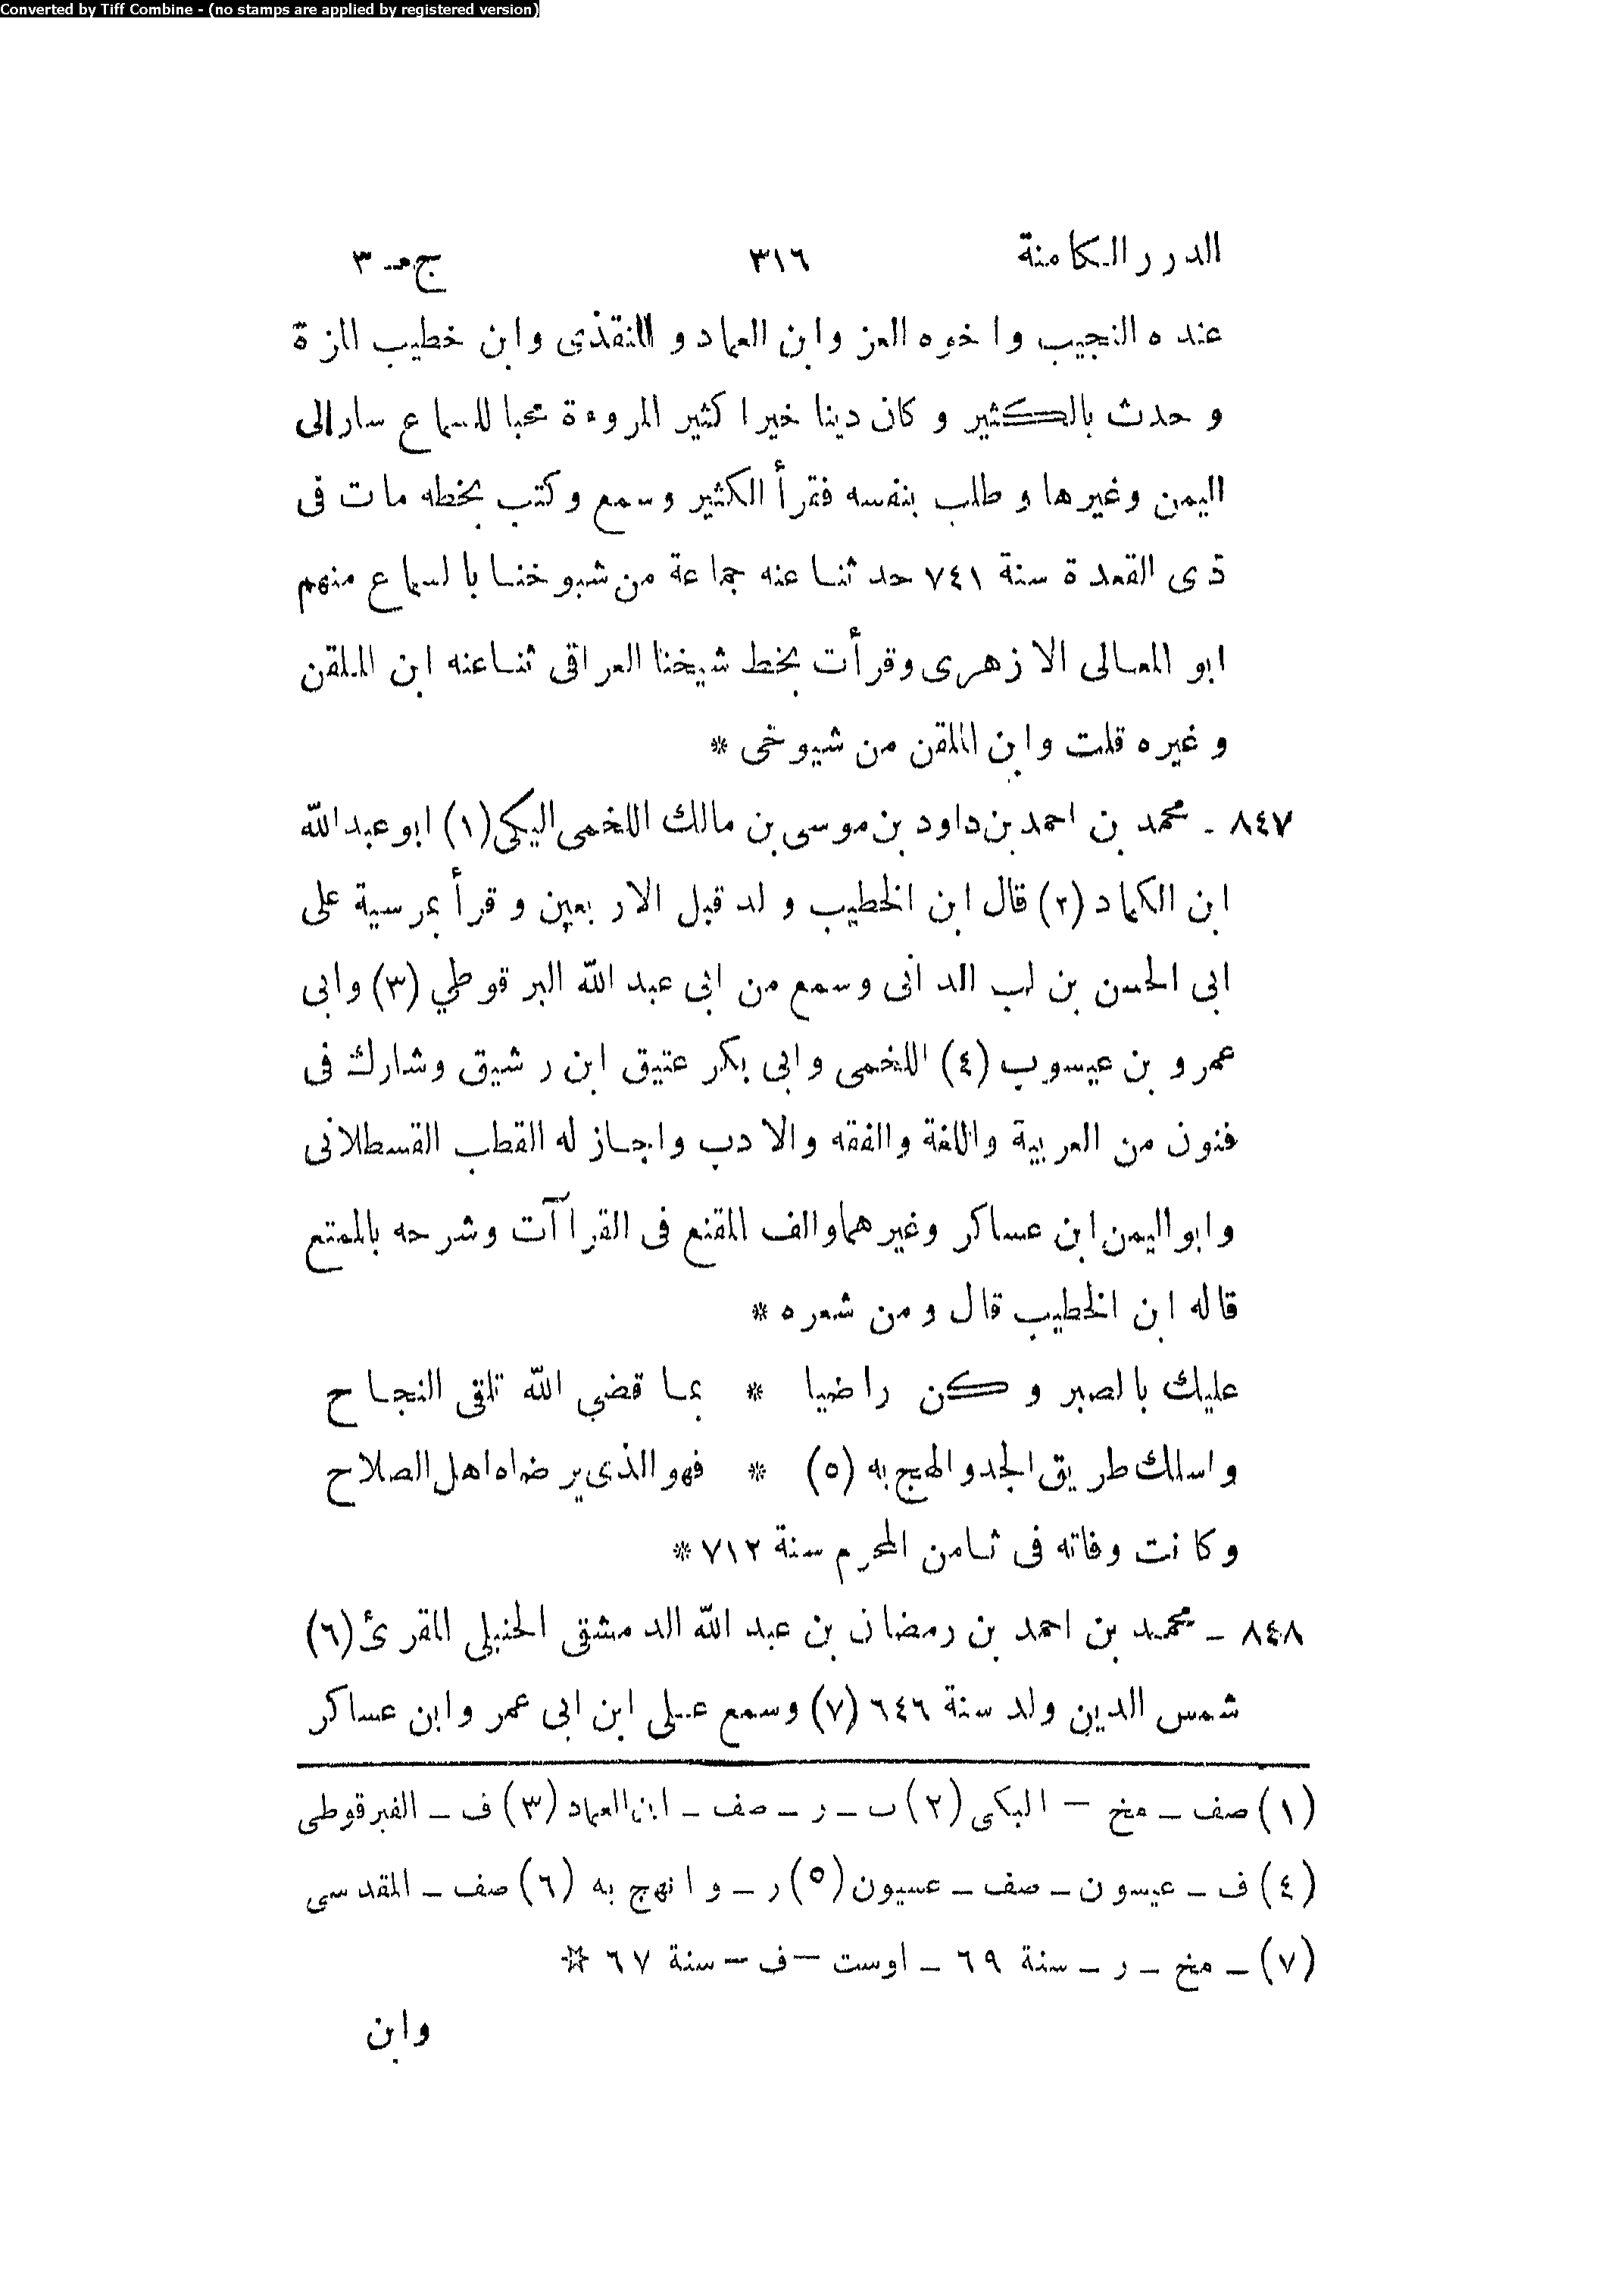 Converted by Tiff Combine - (no stamps are applied by registered version)
الدرر الكامنة ٣١٦ ج - ٣
عنده النجيب واخوه العز وابن العماد والنقذى وابن خطيب المزة
وحدث بالكثير وكان دينا خيرا كثير المروءة محبا للسماع سار الى
اليمن وغيرها وطلب بنفسه فقرأ الكثير وسمع وكتب بخطه مات فى
ذى القعدة سنة ٧٤١ حدثنا عنه جماعة من شيوخنا بالسماع منهم
ابو المعالى الازهرى وقرأت بخط شيخنا العراقى ثنا عنه ابن الملقن
وغيره قلت وابن الملقن من شيوخى *
٨٤٧ - محمد بن احمد بن داود بن موسى بن مالك اللخمى اليكى (١) ابو عبد الله
ابن الكماد (٢) قال ابن الخطيب ولد قبل الاربعين وقرأ بمرسية على
ابى الحسن بن لب الدانى وسمع من ابى عبد الله البرقوطي (٣) وابى
عمرو بن عيسوب (٤) اللخمى وابى بكر عتيق ابن رشيق وشارك فى
فنون من العربية واللغة والفقه والادب واجاز له القطب القسطلانى
وابو اليمن ابن عساكر وغيرهما والف المقنع فى القراآت وشرحه بالممتع
قاله ابن الخطيب قال ومن شعره *
عليك بالصبر وكن راضيا * بما قضى الله تلقى النجاح
واسلك طريق الجد والهج به (٥) * فهو الذى يرضاه اهل الصلاح
وكانت وفاته فى ثامن المحرم سنة ٧١٢ *
٨٤٨ - محمد بن احمد بن رمضان بن عبد الله الدمشقى الحنبلى المقرئ (٦)
شمس الدين ولد سنة ٦٤٦ (٧) وسمع على ابن ابى عمر وابن عساكر
(١) صف - مخ - البكى (٢) ب - ر - صف - ابن العماد (٣) ف - الفبرقوطى
(٤) ف - عيسون - صف - عسيون (٥) ر - وانهج به (٦) صف - المقدسى
(٧) - مخ - ر - سنة ٦٩ - اوست - ف - سنة ٦٧ ☆
وابن